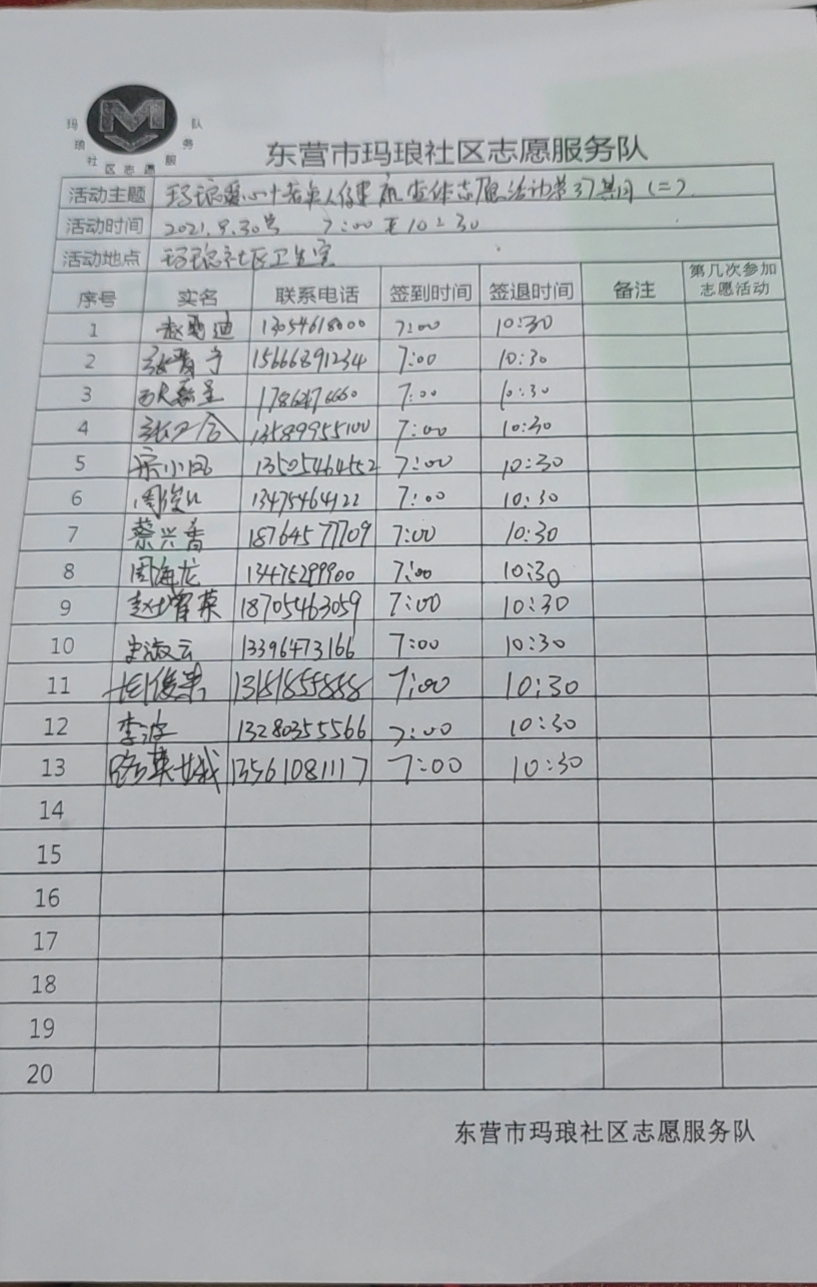 玛琅社区志愿服务队
东营市玛琅社区志愿服务队
活动主题 玛琅爱心十 老年人健康 查体志愿活动第37期(二)
活动时间 2021.9.30号 7:00至10:30
活动地点 玛琅社区卫生室
序号 实名 联系电话 签到时间 签退时间 备注 第几次参加志愿活动
1 赵 迪 13054618000 7:00 10:30
2 15666891234 7:00 10:30
3 7:00 10:30
4 13589955100 7:00 10:30
5 宗小凤 13505464552 7:00 10:30
6 周俊 13475464122 7:00 10:30
7 蔡兴香 18764577709 7:00 10:30
8 周海龙 13475299900 7:00 10:30
9 赵增荣 18705463059 7:00 10:30
10 史淑云 13396473166 7:00 10:30
11 7:00 10:30
12 李波 13280355566 7:00 10:30
13 路英娥 13561081117 7:00 10:30
14
15
16
17
18
19
20
东营市玛琅社区志愿服务队